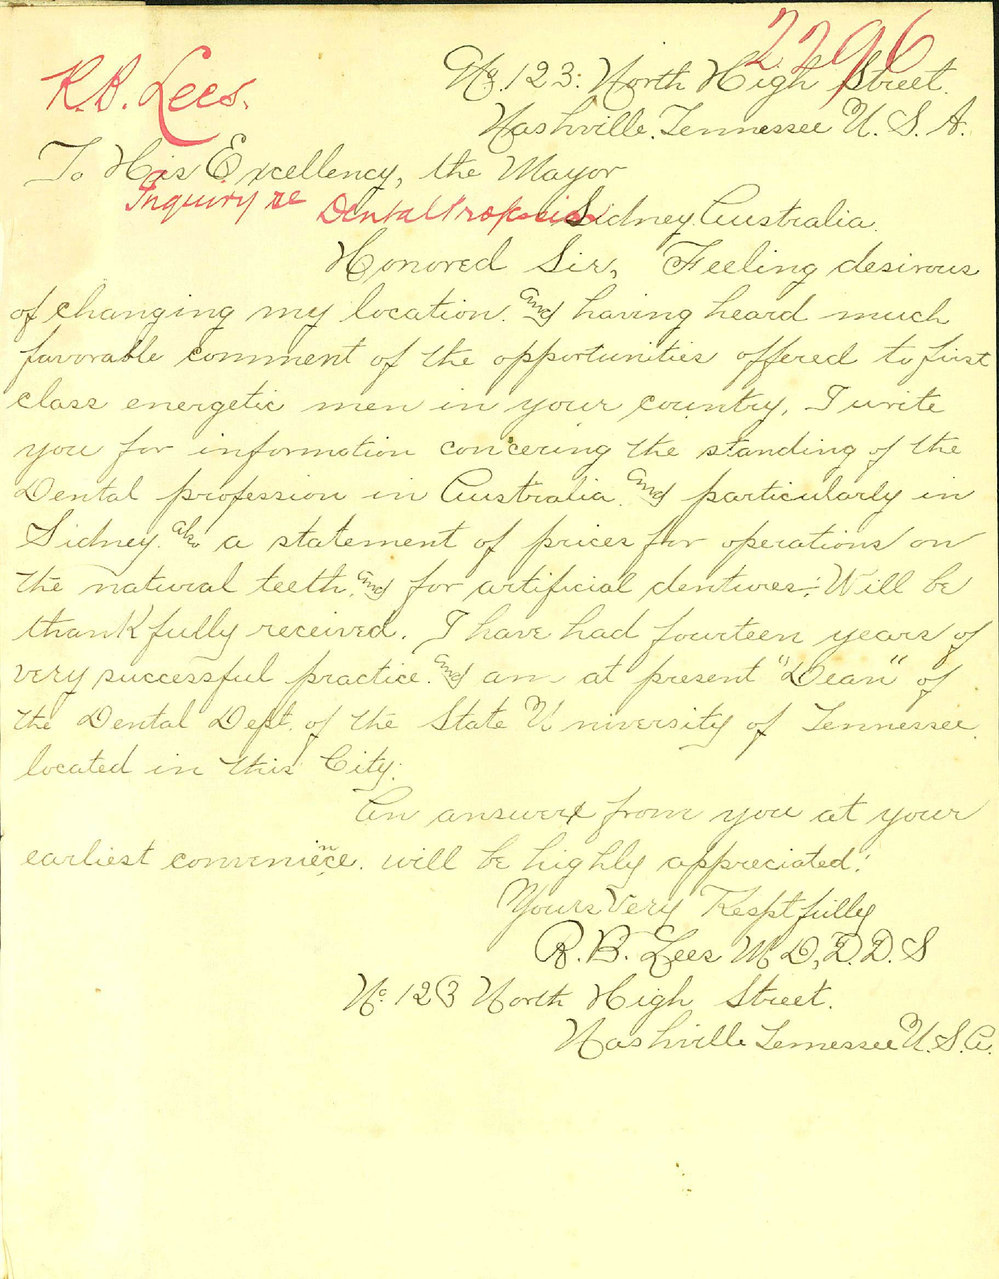 2296
R.B. Lees.
No. 123: North High Street.
Nashville. Tennessee U. S. A.
To His Excellency, the Mayor
Inquiry re Dental Profession
Sidney. Australia.
Honored Sir, Feeling desirous
of changing my location. and having heard much
favorable comment of the opportunities offered to first
class energetic men in your country, I write
you for information concering the standing of the
Dental profession in Australia. and particularly in
Sidney. also a statement of prices for operations on
the natural teeth. and for artificial dentures: Will be
thankfully received. I have had fourteen years of
very successful practice. and am at present "Dean" of
the Dental Dept. of the State University of Tennessee.
located in this City.
An answer from you at your
earliest convenience. will be highly appreciated.
Yours Very Respctfully
R. B. Lees M D, D. D. S
No. 123 North High Street.
Nashville Tennessee U. S. A.